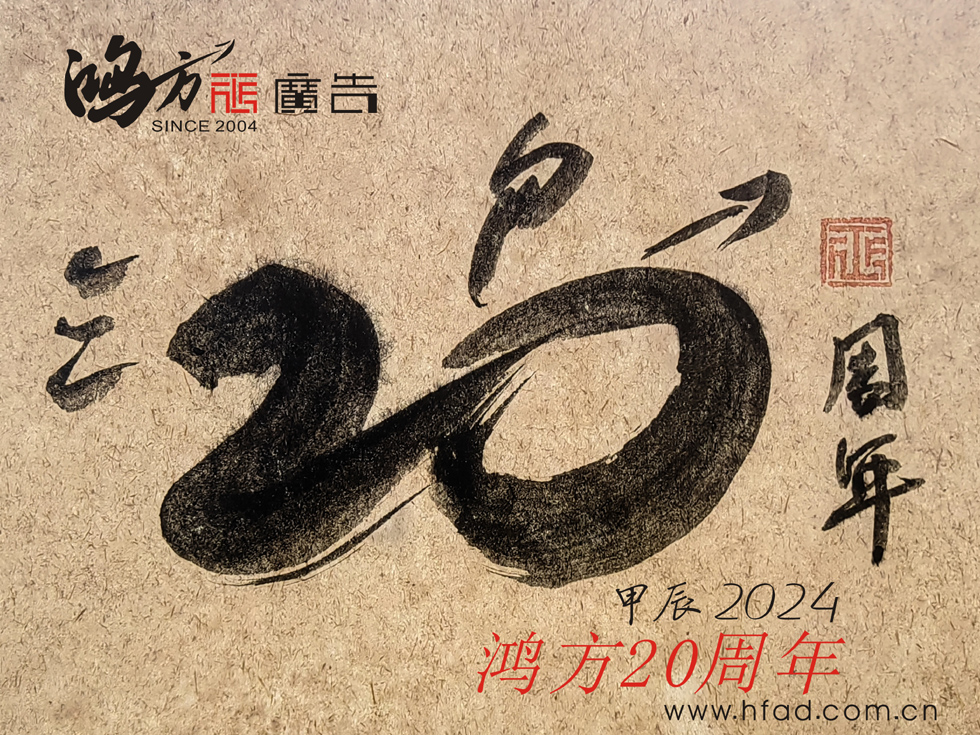 鸿方 廣告
SINCE 2004
20
周年
甲辰 2024
鸿方20周年
www.hfad.com.cn